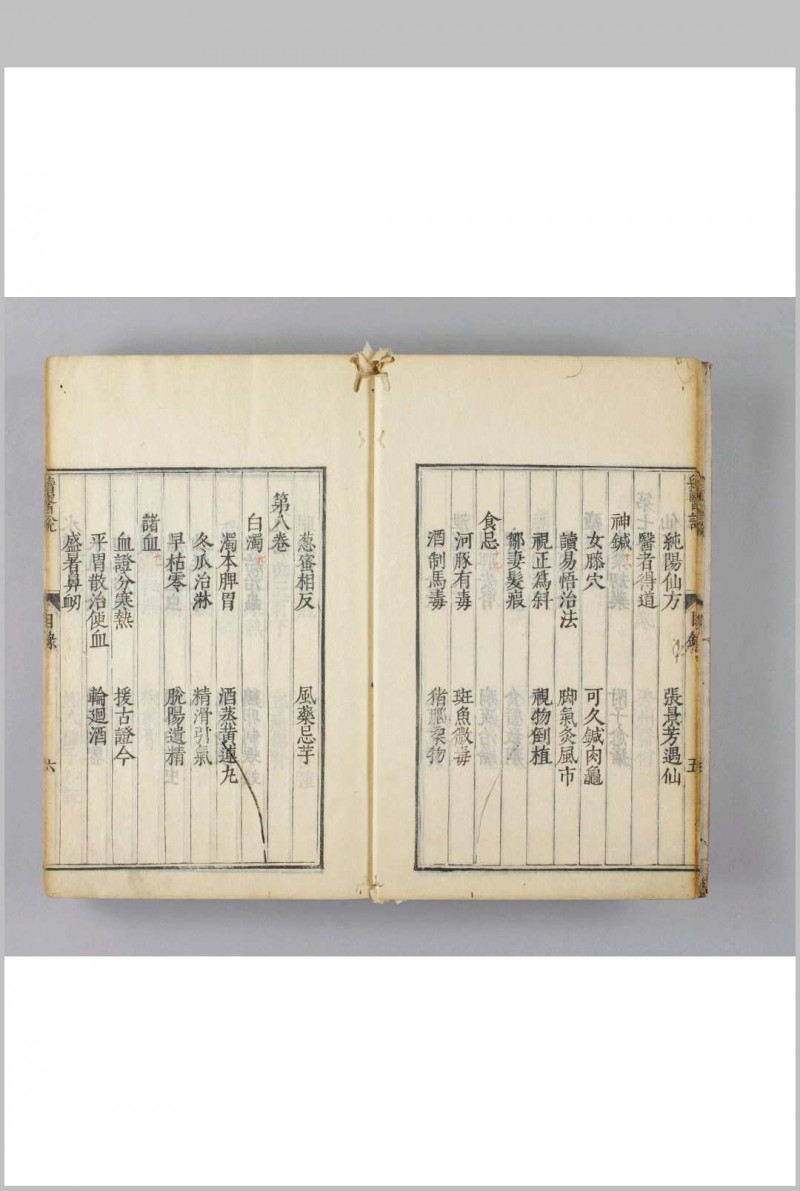 純陽仙方 張景芳遇仙
醫者得道
神鍼
女膝穴 可久鍼肉龜
讀易悟治法 脚氣灸風市
視正為斜 視物倒植
鄒妻髮瘕
食忌
河豚有毒 斑魚微毒
酒制馬毒
葱蜜相反 風藥忌芋
第八卷
白濁
濁本脾胃 酒蒸黃連丸
冬瓜治淋 精滑引氣
旱枯零 脫陽遺精
諸血
血證分寒熱 援古證今
平胃散治使血 輪迴酒
盛暑鼻衂
目錄 六